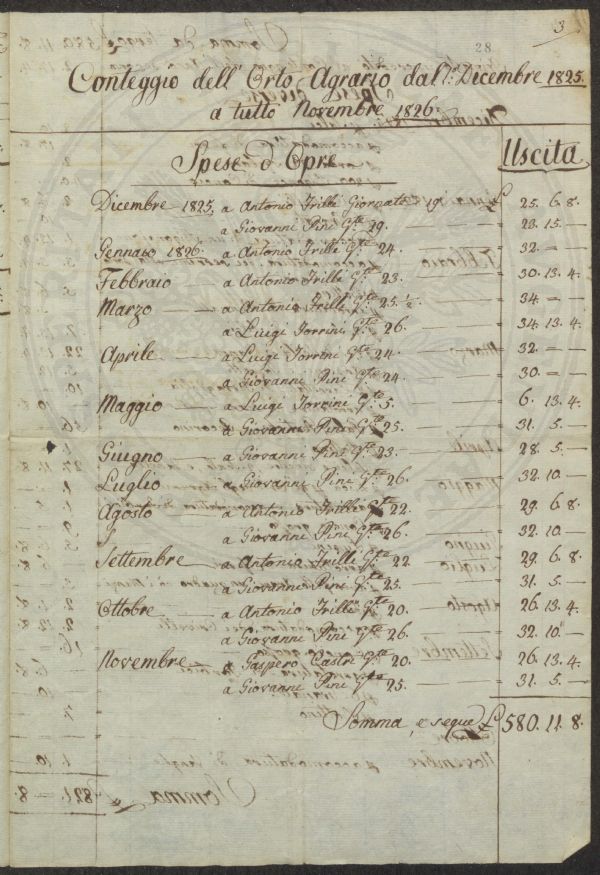 3
28
Conteggio dell'Orto Agrario dal 1º Dicembre 1825.
a tutto Novembre 1826.
Spese d'Opre Uscita
Dicembre 1825. a Antonio Trilli Giornate 19. £ 25. 6. 8.
a Giovanni Pini Gte 29. 23. 15. —
Gennajo 1826. a Antonio Trilli Gte 24. 32. — —
Febbraio a Antonio Trilli Gte 23. 30. 13. 4.
Marzo — a Antonio Trilli Gte 25. ½ — 34. — —
a Luigi Torrini Gte 26. 34. 13. 4.
Aprile — a Luigi Torrini Gte 24. 32. — —
a Giovanni Pini Gte 24. 30. — —
Maggio — a Luigi Torrini Gte 5. 6. 13. 4.
a Giovanni Pini Gte 25. 31. 5. —
Giugno — a Giovanni Pini Gte 23. 28. 5. —
Luglio — a Giovanni Pini Gte 26. 32. 10. —
Agosto a Antonio Trilli Gte 22. 29. 6. 8.
a Giovanni Pini Gte 26. 32. 10. —
Settembre — a Antonio Trilli Gte 22. 29. 6. 8.
a Giovanni Pini Gte 25. 31. 5. —
Ottobre — a Antonio Trilli Gte 20. 26. 13. 4.
a Giovanni Pini Gte 26. 32. 10. —
Novembre — a Gaspero Castri Gte 20. 26. 13. 4.
a Giovanni Pini Gte 25. 31. 5. —
Somma, e segue £ 580. 11. 8.